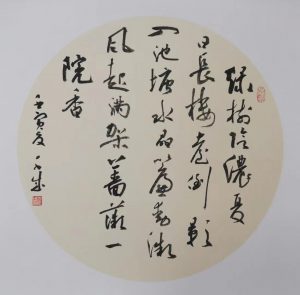 綠樹陰濃夏
日長樓臺倒影
入池塘水晶簾動微
風起滿架薔薇一
院香
壬寅夏